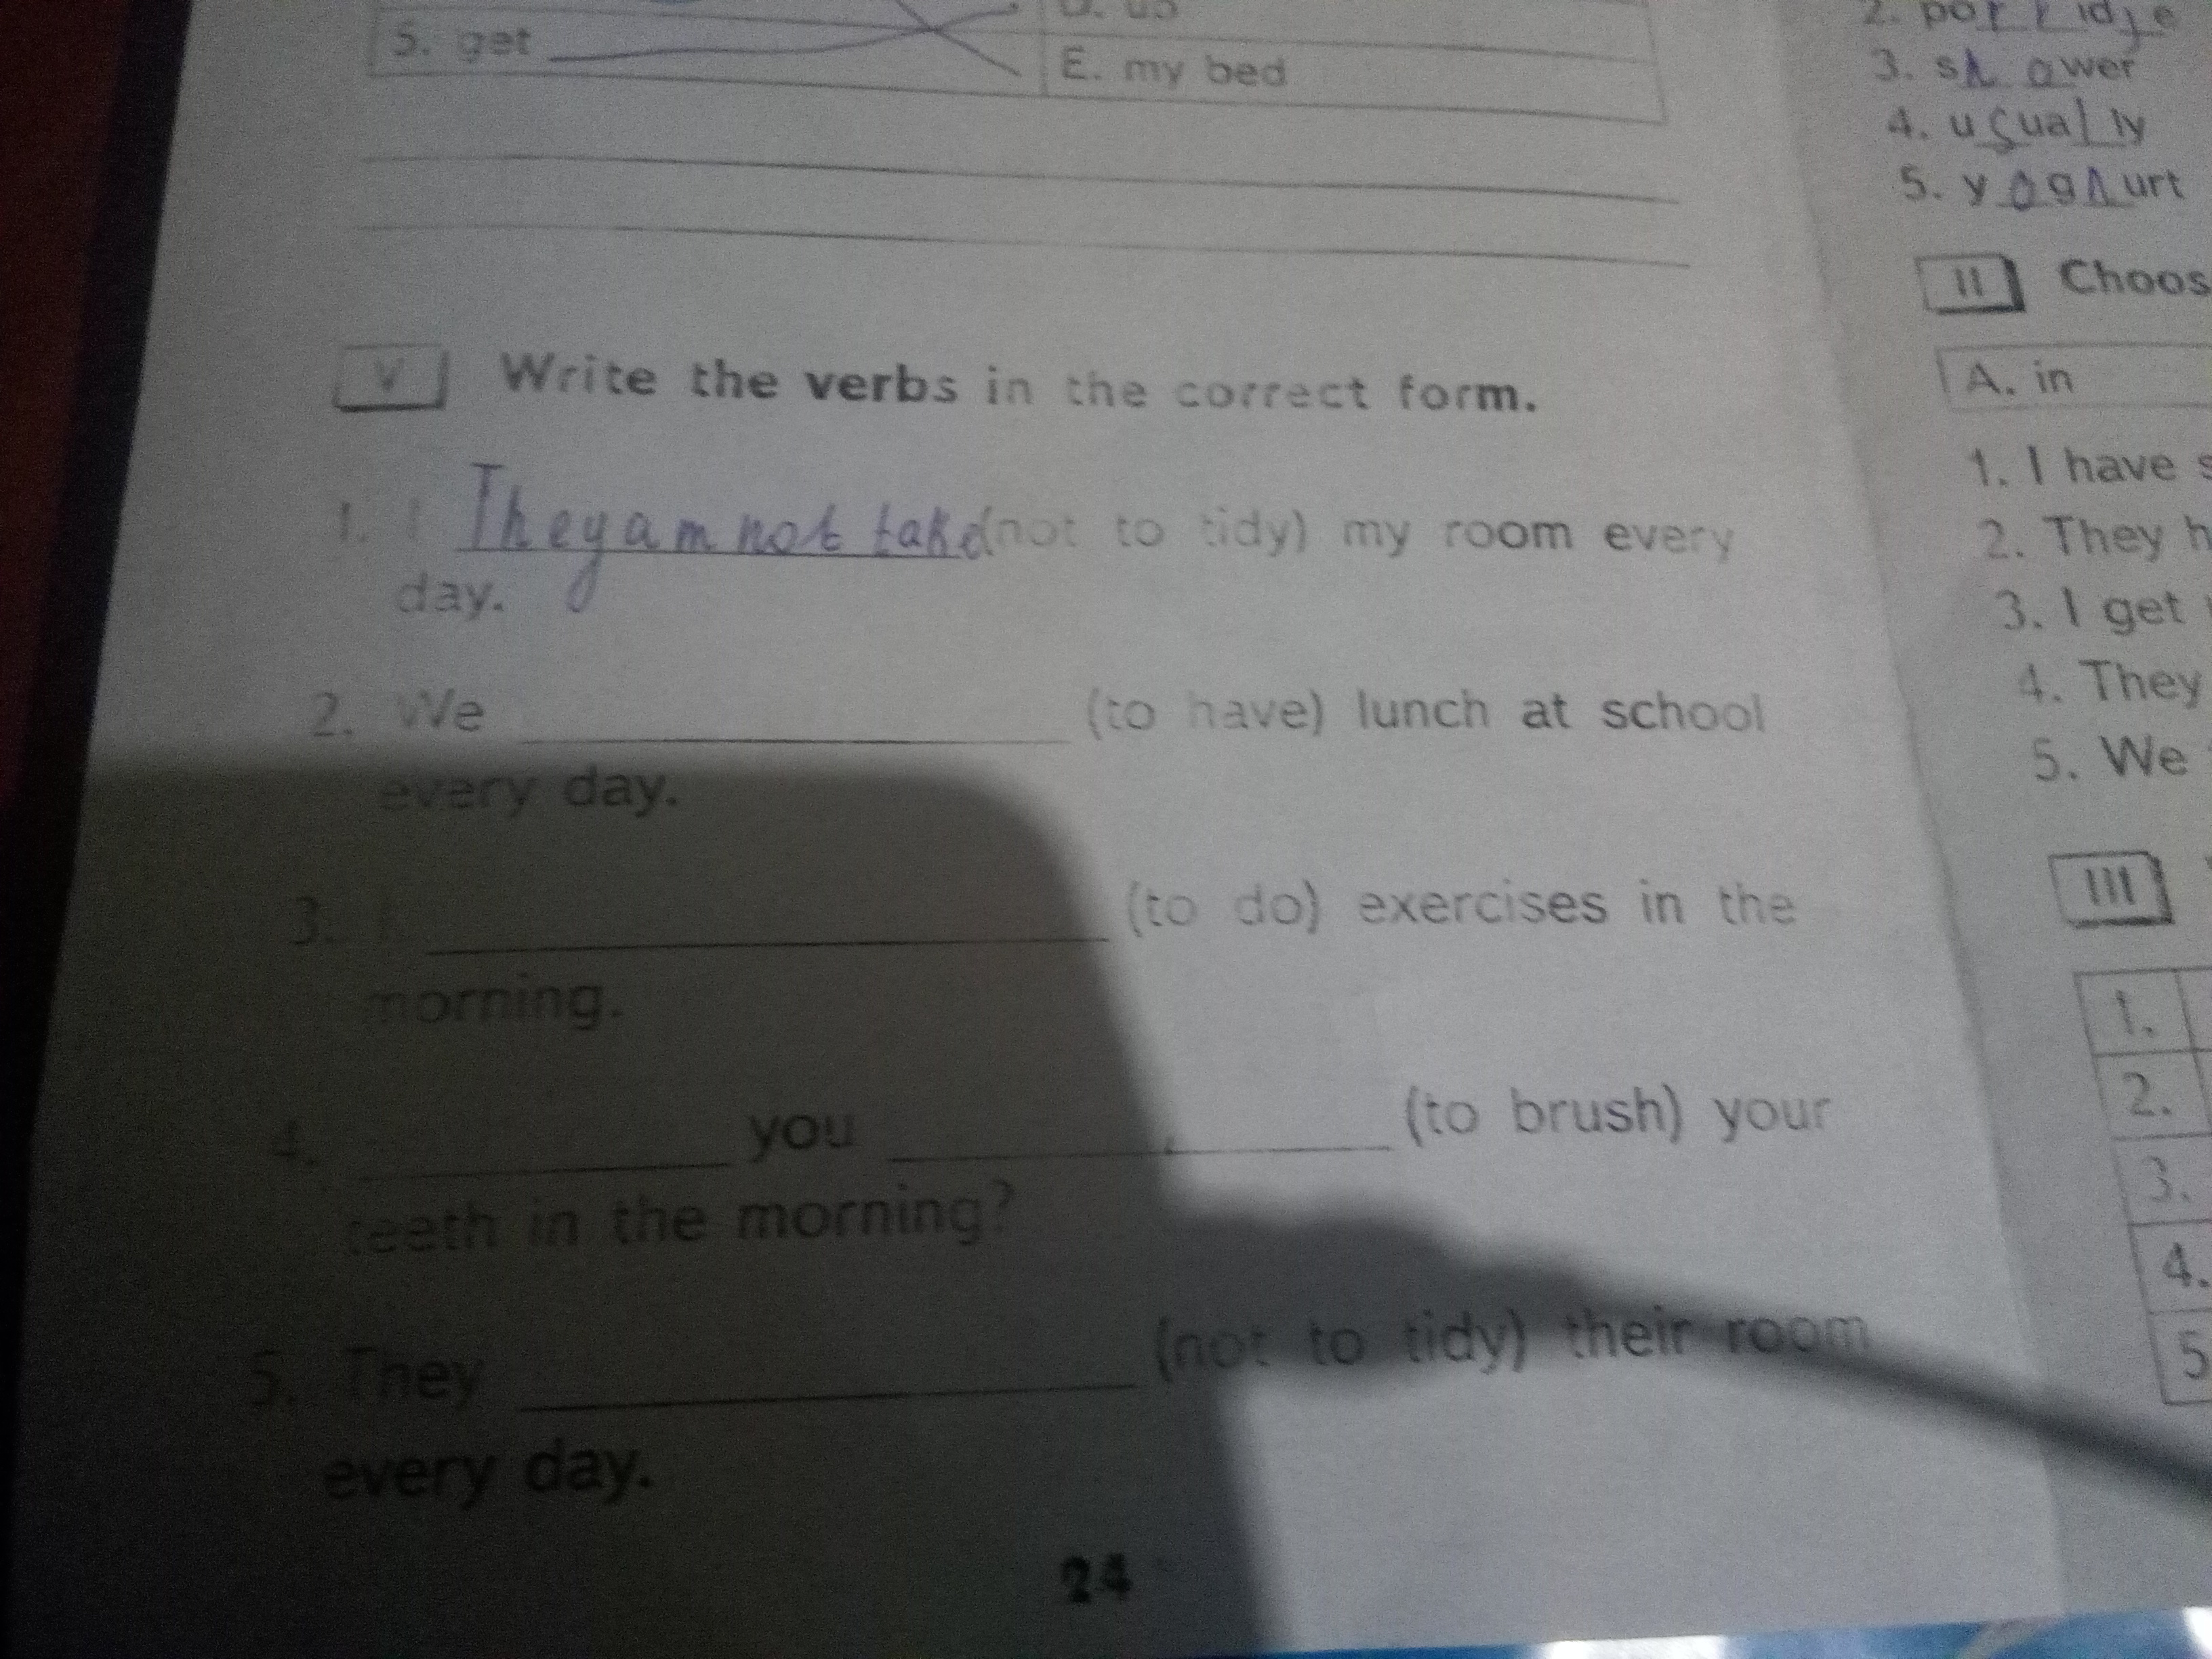 5. get
E. my bed
V Write the verbs in the correct form.
1. I They am not take (not to tidy) my room every
day.
2. We (to have) lunch at school
every day.
3. I (to do) exercises in the
morning.
4. you (to brush) your
teeth in the morning?
5. They (not to tidy) their room
every day.
24
2. porridje
3. shower
4. usually
5. yoghurt
II Choos
A. in
1. I have s
2. They h
3. I get
4. They
5. We
III
1.
2.
3.
4.
5